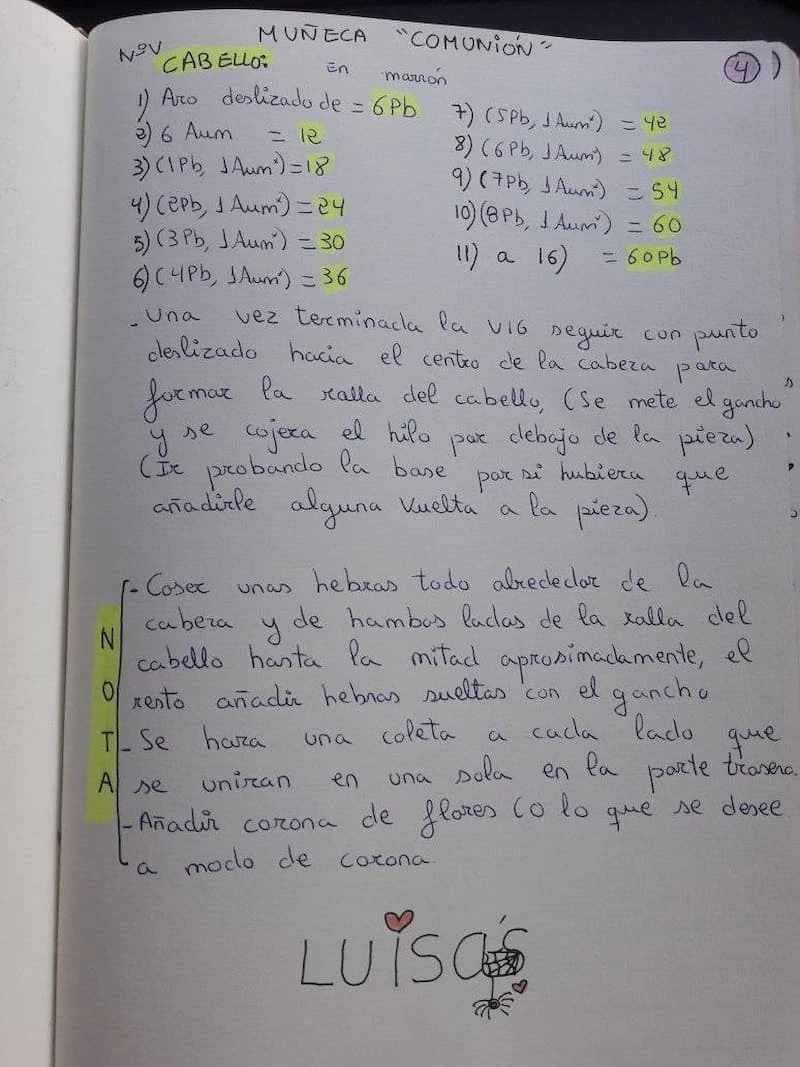 MUÑECA "COMUNIÓN"
4
NºV
CABELLO: En marrón
1) Aro deslizado de = 6Pb
2) 6 Aum = 12
3) (1Pb, 1Aum) = 18
4) (2Pb, 1Aum) = 24
5) (3Pb, 1Aum) = 30
6) (4Pb, 1Aum) = 36
7) (5Pb, 1Aum) = 42
8) (6Pb, 1Aum) = 48
9) (7Pb, 1Aum) = 54
10) (8Pb, 1Aum) = 60
11) a 16) = 60Pb
- Una vez terminada la V16 seguir con punto
deslizado hacia el centro de la cabeza para
formar la ralla del cabello, (Se mete el gancho
y se cojera el hilo por debajo de la pieza)
(Ir probando la base por si hubiera que
añadirle alguna vuelta a la pieza).
NOTA
- Coser unas hebras todo alrededor de la
cabeza y de hambos lados de la ralla del
cabello hasta la mitad aprosimadamente, el
resto añadir hebras sueltas con el gancho
- Se hara una coleta a cada lado que
se uniran en una sola en la parte trasera.
- Añadir corona de flores (o lo que se desee
a modo de corona.
LUISA'S